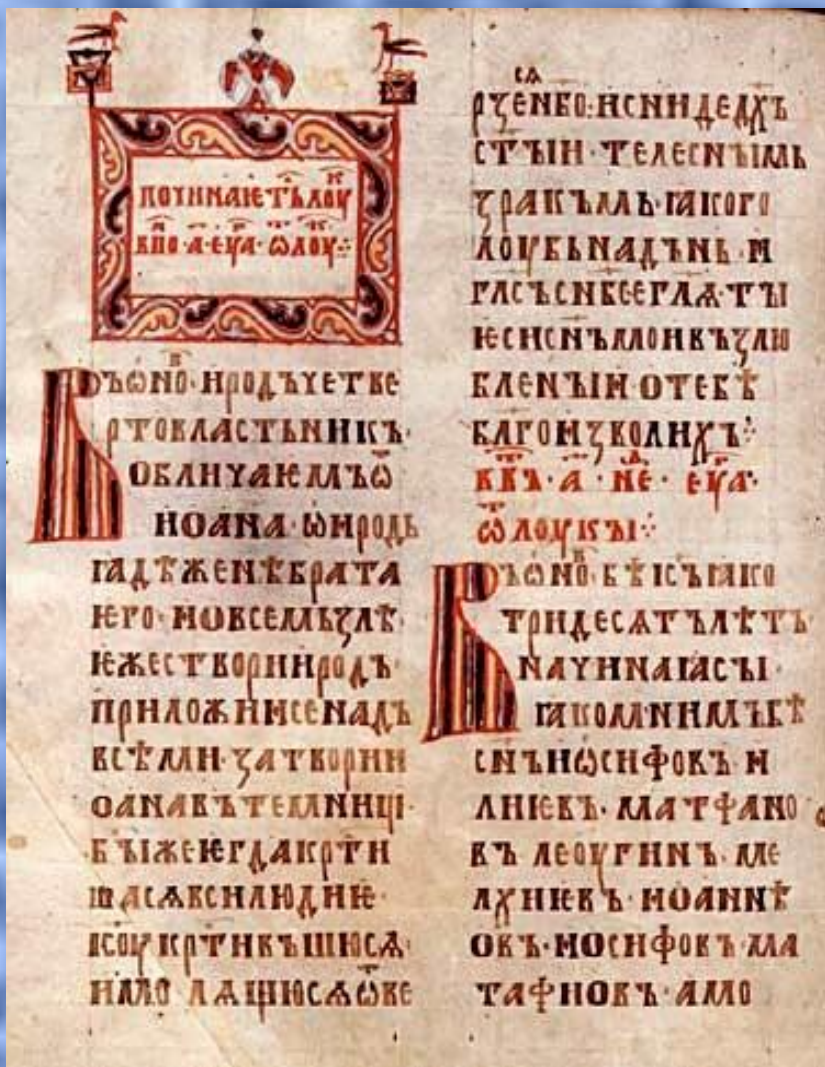 починаѥтълоу
к҃по·а҃·еѵа·ѿлоу⁘
Въѡно·иродъчетве
ртовластьникъ·
обличаѥмъѿ
иоана·ѡирода
ꙗдѣженѣбрата
ѥго·иовсемьзлѣ·
ѥжестворииродъ·
приложиисенадъ
всѣми·затвории
оанавътемници·
быжеѥгдакрт҃и
шасѧвсилюдиѥ·
ісоукрт҃ивъшюсѧ·
имолѧщюсѧѿве
рзенбо·иснидедх҃ъ
ст҃ыи·телеснымь
зракъмь·ꙗкого
лоубьнадънь·и
гласъснб҃сеглѧ·ты
ѥсисн҃ъмоивъзлю
бленыи·отебѣ
благоизволихъ⁘
вв҃ъ·а҃·не·еѵа·
ѿлоукы⁘
Въѡно·бѣіс҃ъꙗко
тридесѧтълѣтъ
начинаꙗсꙑ·
ꙗкомнимъбѣ
сн҃ъиѡсифовъ·и
лиѥвъ·матфано
въ леоугиинъ·ме
лхиѥвъ·иоаннѣ
овъ·иосифовъ·ма
тафиовъ·амо